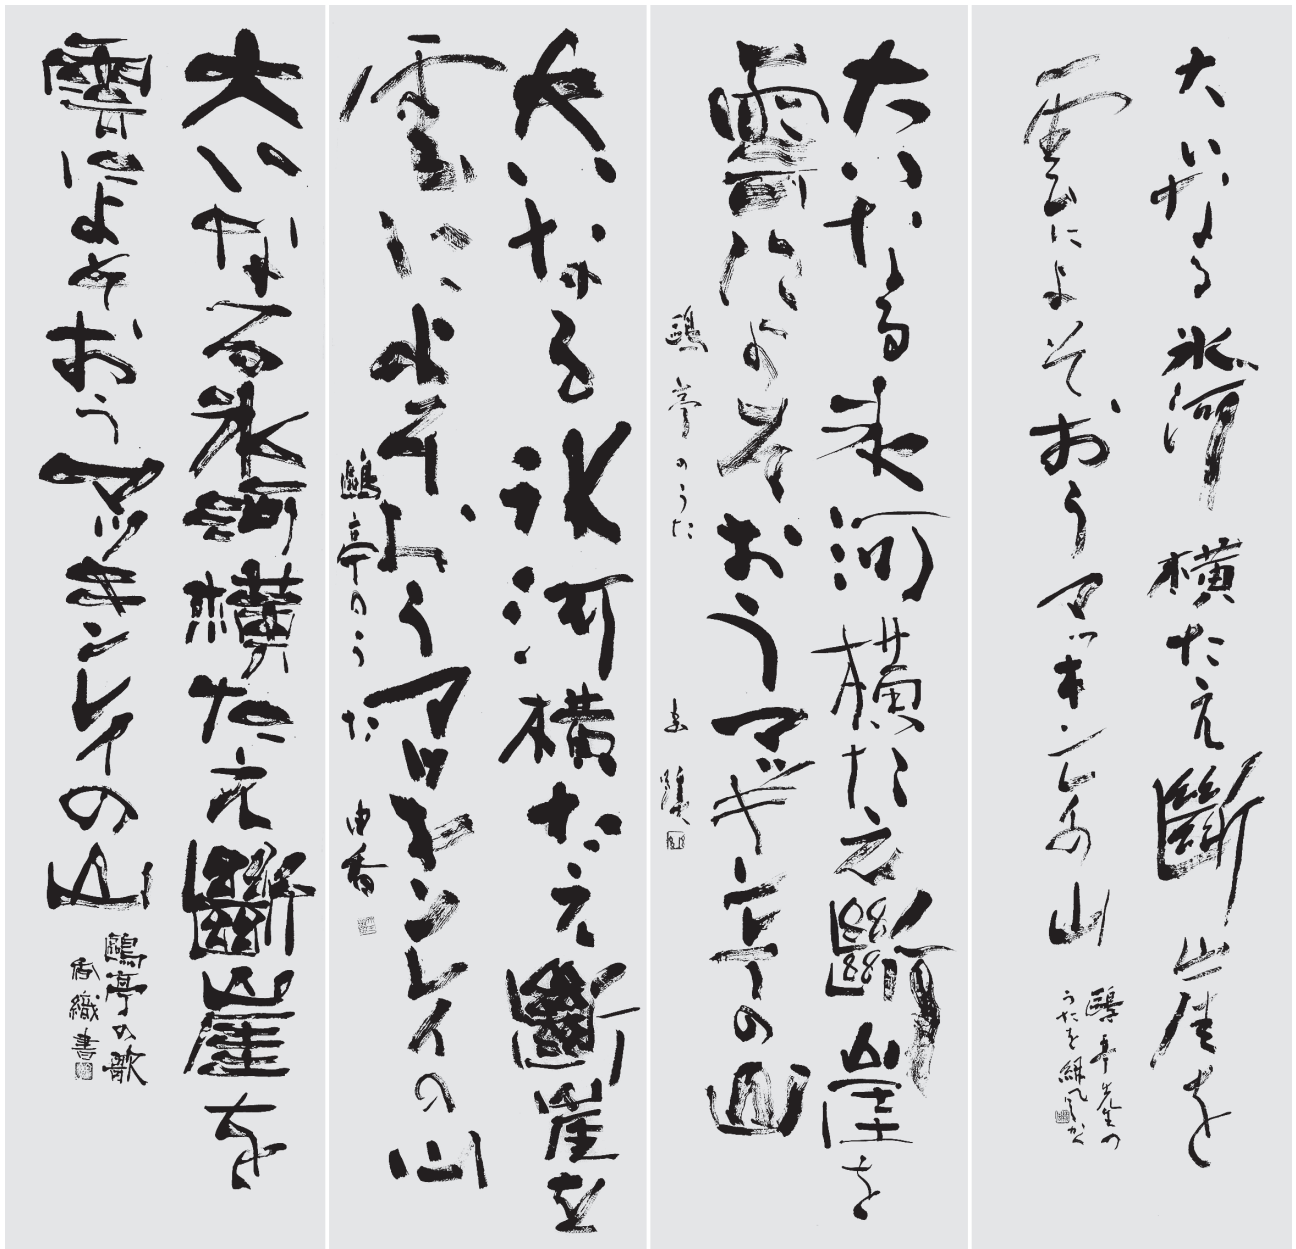 大いなる氷河横たえ斷崖を
雲によそおうマッキンレイの山
鷗亭先生の
うたを
大いなる氷河横たえ斷崖を
雲によそおうマッキンレーの山
鷗亭のうた
大いなる氷河横たえ斷崖を
雲によそおうマッキンレイの山
鷗亭のうた 由香
大いなる氷河横たえ斷崖を
雲によそおうマッキンレイの山
鷗亭の歌
香織書